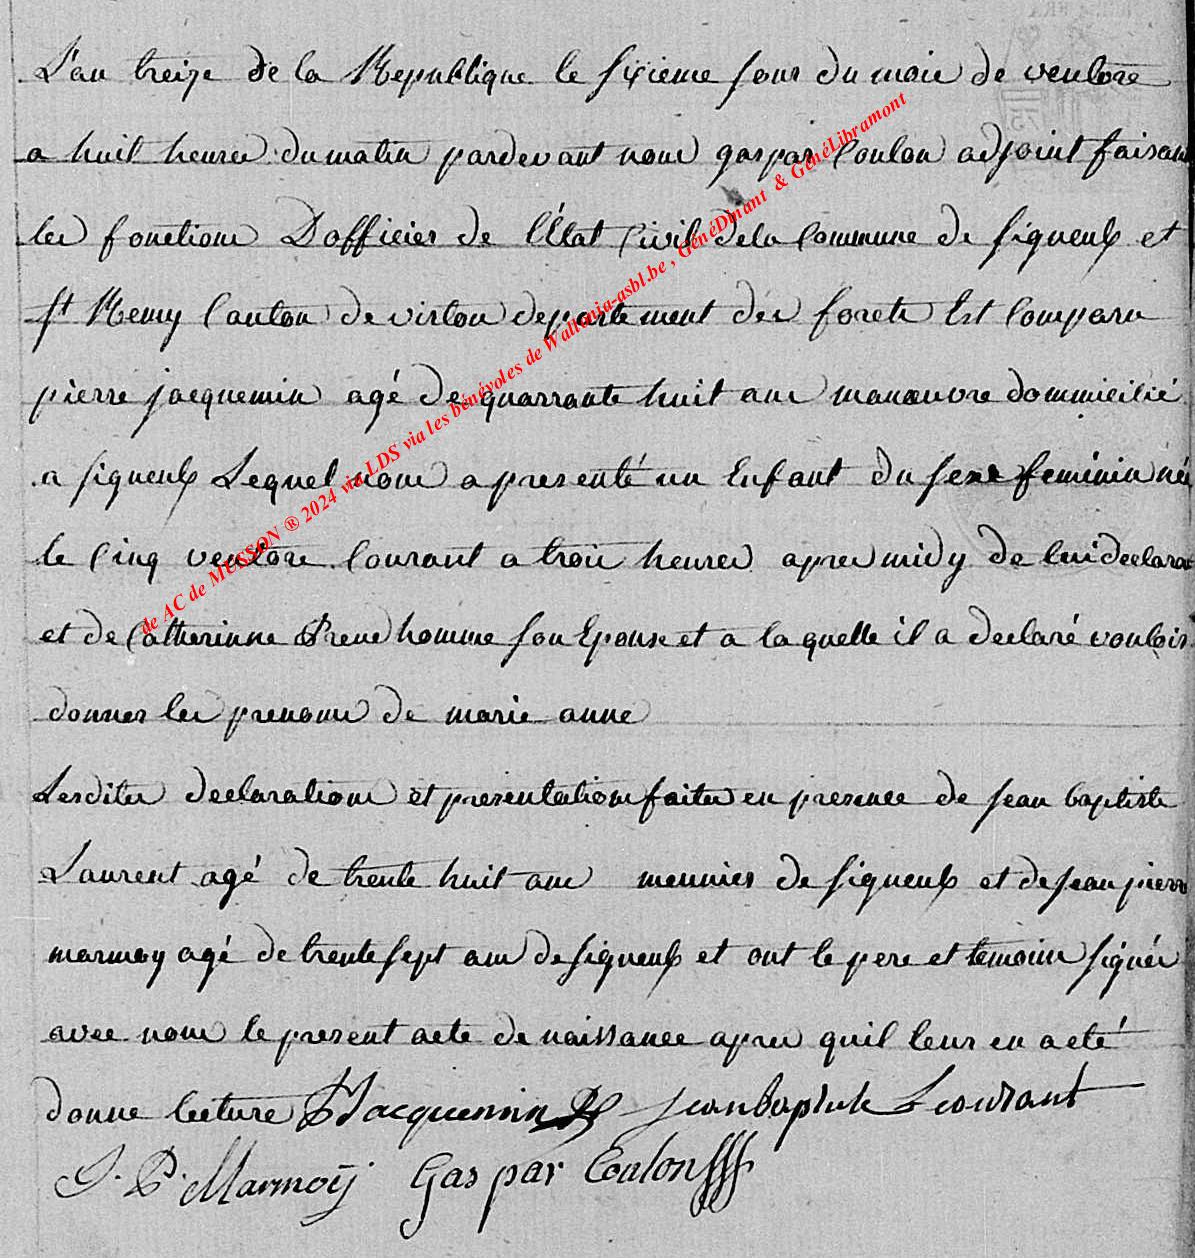 L'an treize de la Republique le sixieme jour du mois de ventose
a huit heures du matin pardevant nous gaspar Coulon adjoint faisant
les fonctions D officier de l'État Civil dela Commune de signeulx et
st Remy Canton de virton departement des forets Est Comparu
pierre jacquemin agé de quarrante huit ans manœuvre dommicilié
a signeulx Lequel nous a presenté un Enfant du sexe feminin née
le Cinq ventose Courant a trois heures apres midy de lui declarant
et de Catherinne Preudhomme son Epouse et a laquelle il a declaré vouloir
donner les prenoms de marie anne
Lesdites declarations et presentations faites en presence de jean baptiste
Laurent agé de trente huit ans meunier de signeulx et de jean pierre
marmoy agé de trente sept ans de signeulx et ont le pere et temoins signés
avec nous le present acte de naissance apres quil leur en a eté
donne lecture PJacquemin jean baptiste Leaurant
J. P. Marmoÿ Gaspar Coulon
de AC de MUSSON ® 2024 via LDS via les bénévoles de Wallonia-asbl.be , GénéDinant & GénéLibramont